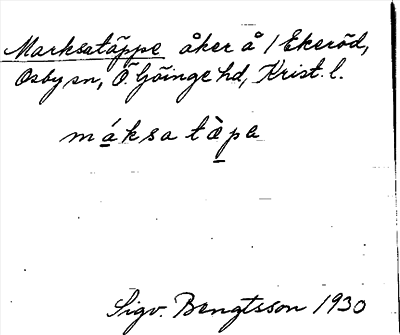 Marksatäppe åker å 1 Ekeröd,
Osby sn, Ö. Göinge hd, Krist. l.
máksa tàpa
Sigv. Bengtsson 1930